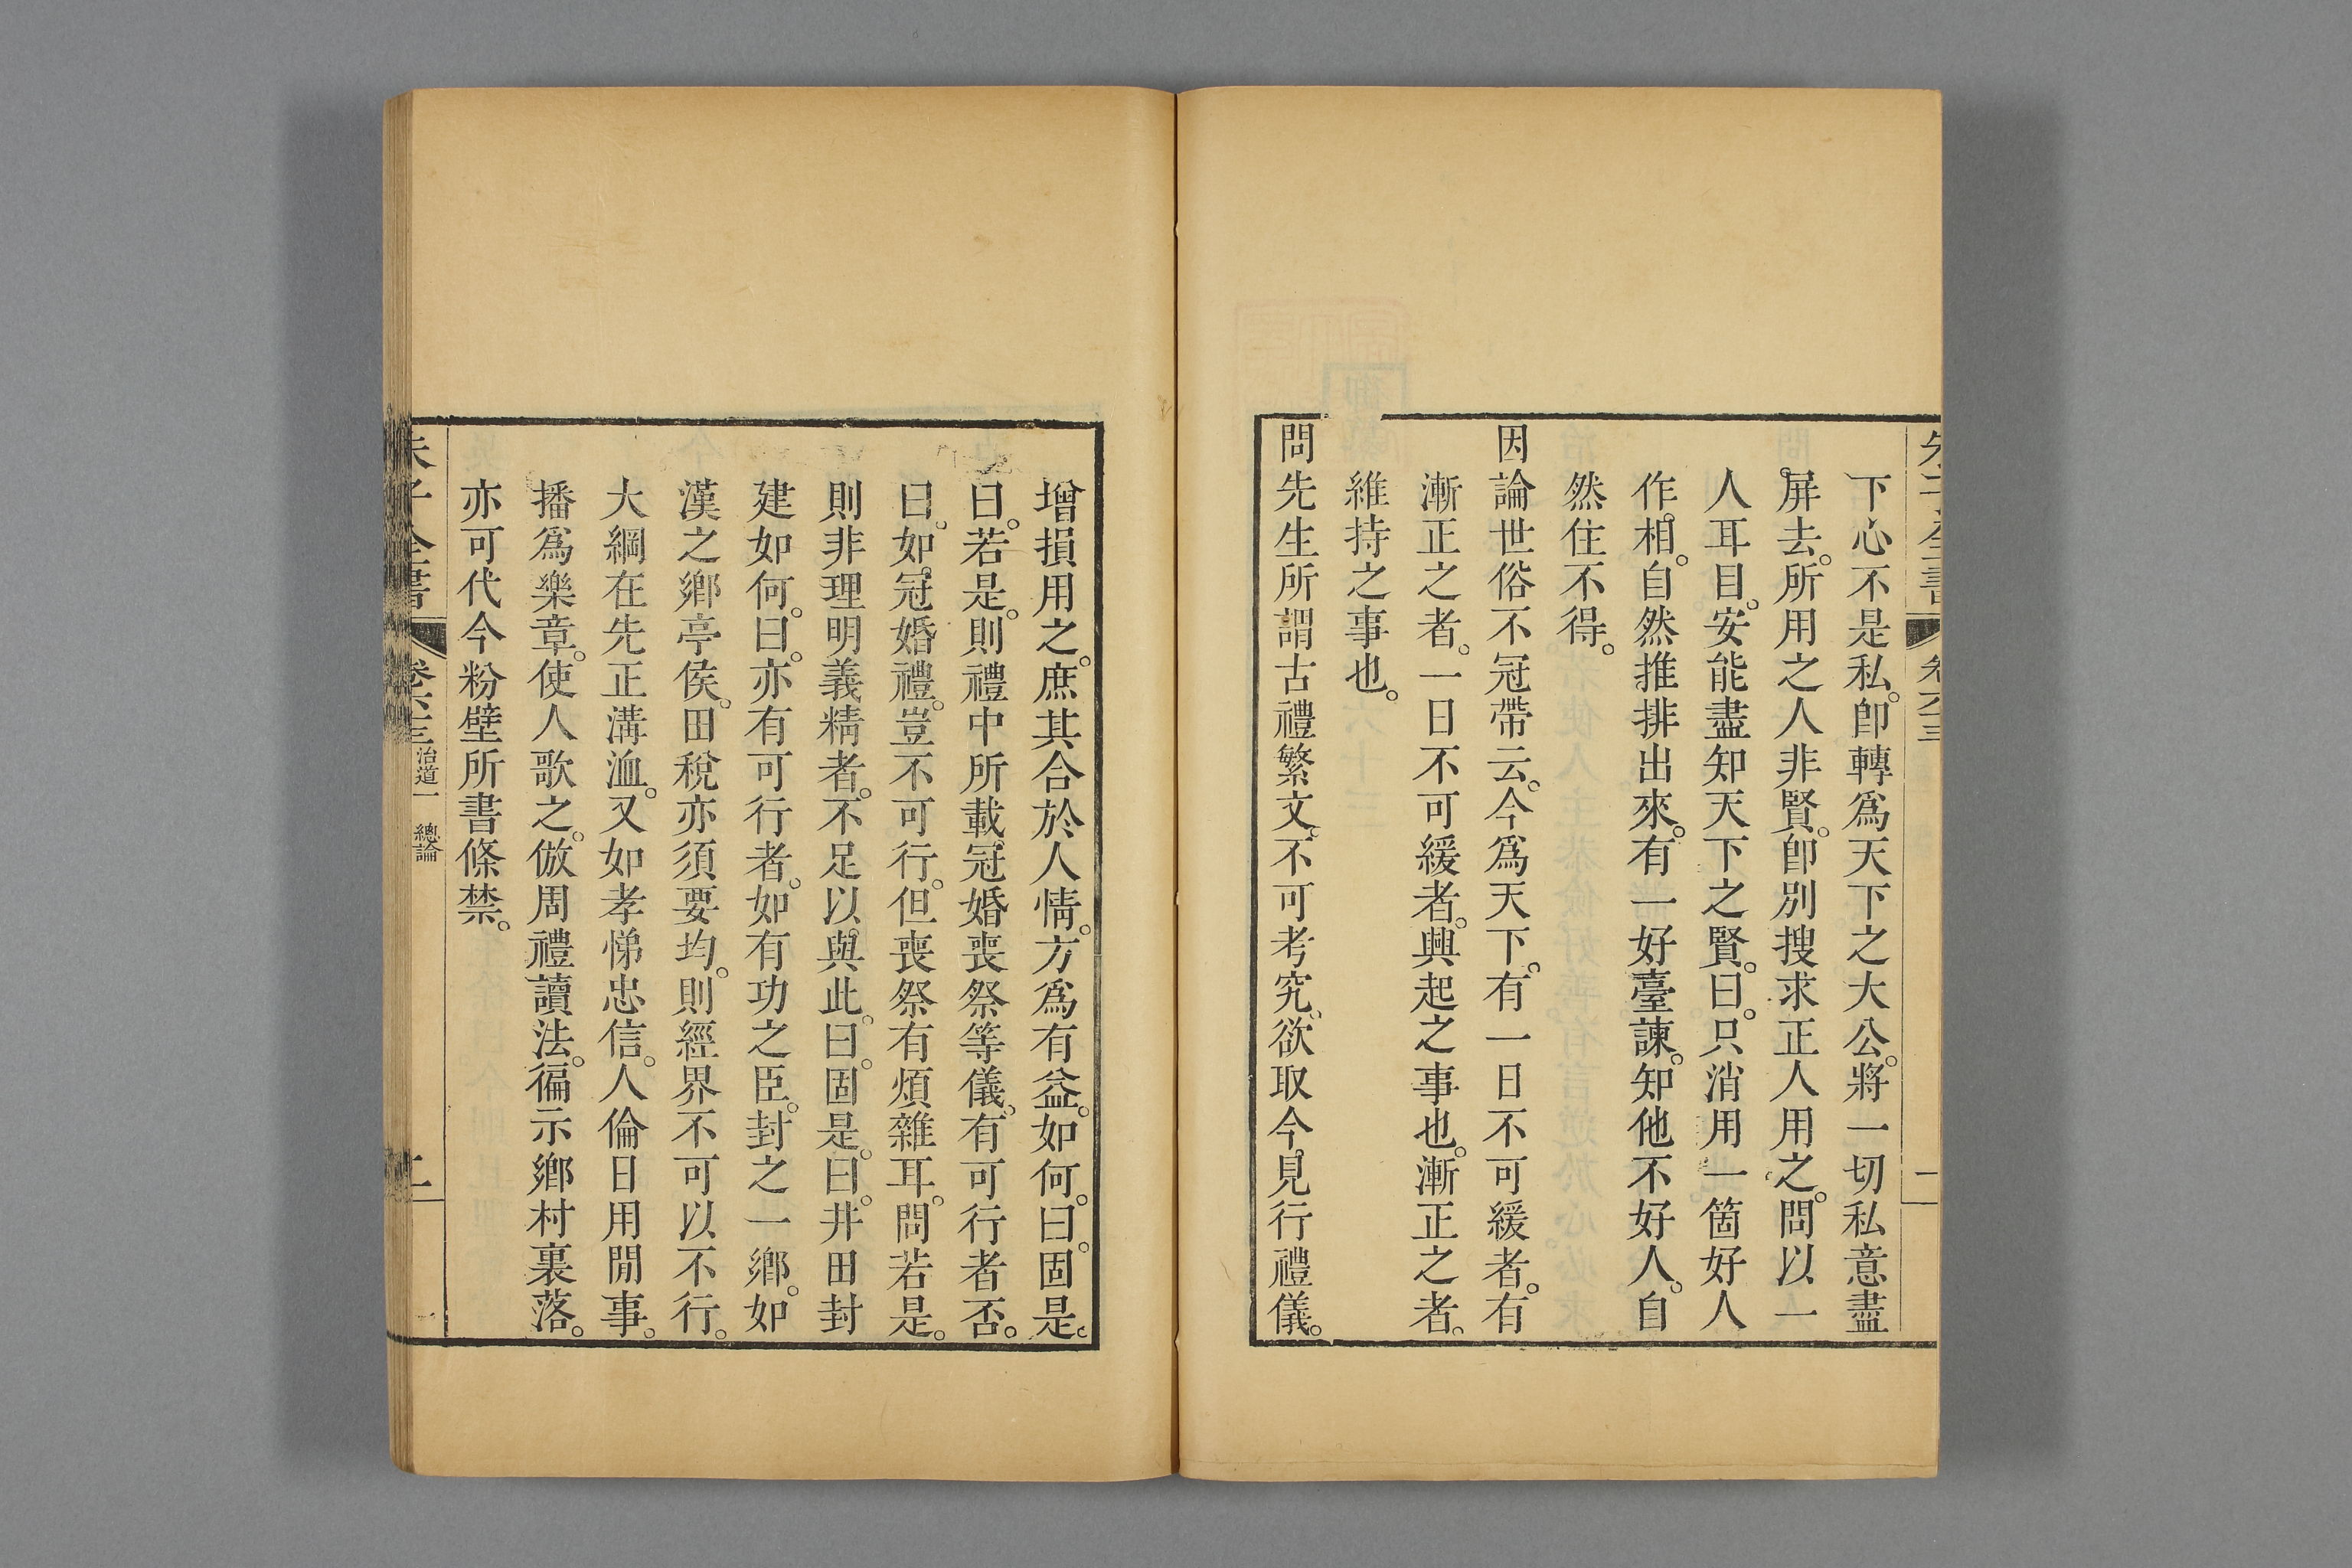 下心不是私。卽轉爲天下之大公。將一切私意盡
屏去。所用之人非賢。卽別搜求正人用之。問以一
人耳目。安能盡知天下之賢。曰。只消用一箇好人
作相。自然推排出來。有一好臺諫。知他不好人。自
然住不得。
因論世俗不冠帶云。今爲天下。有一日不可緩者。有
漸正之者。一日不可緩者。興起之事也。漸正之者。
維持之事也。
問先生所謂古禮繁文。不可考究。欲取今見行禮儀。
增損用之。庶其合於人情。方爲有益。如何。曰。固是。
曰。若是。則禮中所載冠婚喪祭等儀。有可行者否。
曰。如冠婚禮。豈不可行。但喪祭有煩雜耳。問若是。
則非理明義精者。不足以與此。曰。固是。曰。井田封
建如何。曰。亦有可行者。如有功之臣。封之一鄉。如
漢之鄉亭侯。田稅亦須要均。則經界不可以不行。
大綱在先正溝洫。又如孝悌忠信。人倫日用閒事。
播爲樂章。使人歌之。倣周禮讀法。徧示鄉村裏落。
亦可代今粉壁所書條禁。
朱子全書 卷六十三 治道一 總論